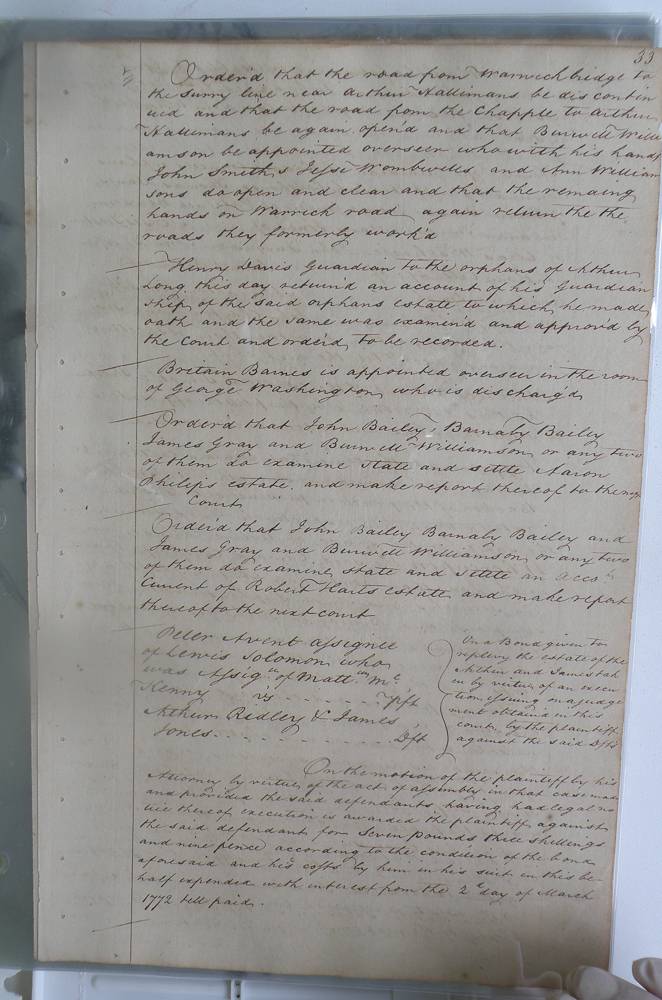 33
Order'd that the road from Warwick bridge to
the surry line near Arthur Hallimans be discontin
ued and that the road from the Chapple to Arthur
Hallimans be again opend and that Burwell Willi
amson be appointed overseer who with his hands
John Smiths Jesse Wombwells and Ann William
sons do open and clear and that the remaing
hands on Warrick road again return the the
roads they formerly work'd
Henry Davis Guardian to the orphans of Arthur
Long this day return'd an account of his Guardian
ship of the said orphans estate to which he made
oath and the same was examin'd and approv'd by
the Court and order'd to be recorded.
Britain Barnes is appointed overseer in the room
of George Washington who is discharg'd
Order'd that John Bailey, Barnaby Bailey
James Gray and Burwell Williamson or any two
of them do examine state and settle Aaron
Philips estate and make report thereof to the next
Court
Order'd that John Bailey Barnaby Bailey and
James Gray and Burwell Williamson or any two
of them do examine state and settle an Acco.t
Current of Robert Harts estate and make report
thereof to the next court
Peter Avent assignee
of Lewis Solomon who
was Assig.n of Matt.w Mc
Kenny vs Plft
Arthur Ridley & James
Jones Dft
On a Bond given to
replevy the estate of the
Arthur and James tak
en by virtue of an execu
tion issuing on a judge
ment obtain'd in this
court by the plaintiff
against the said Dfts
On the motion of the plaintiff by his
Attorney by virtue of the act of assembly in that case made
and provided the said defendants having had legal no
tice thereof execution is awarded the plaintiff against
the said defendant for Seven pounds three shillings
and nine pence according to the condition of the bond
aforesaid and his costs by him in his suit in this be
half expended with interest from the 2d day of March
1772 till paid.